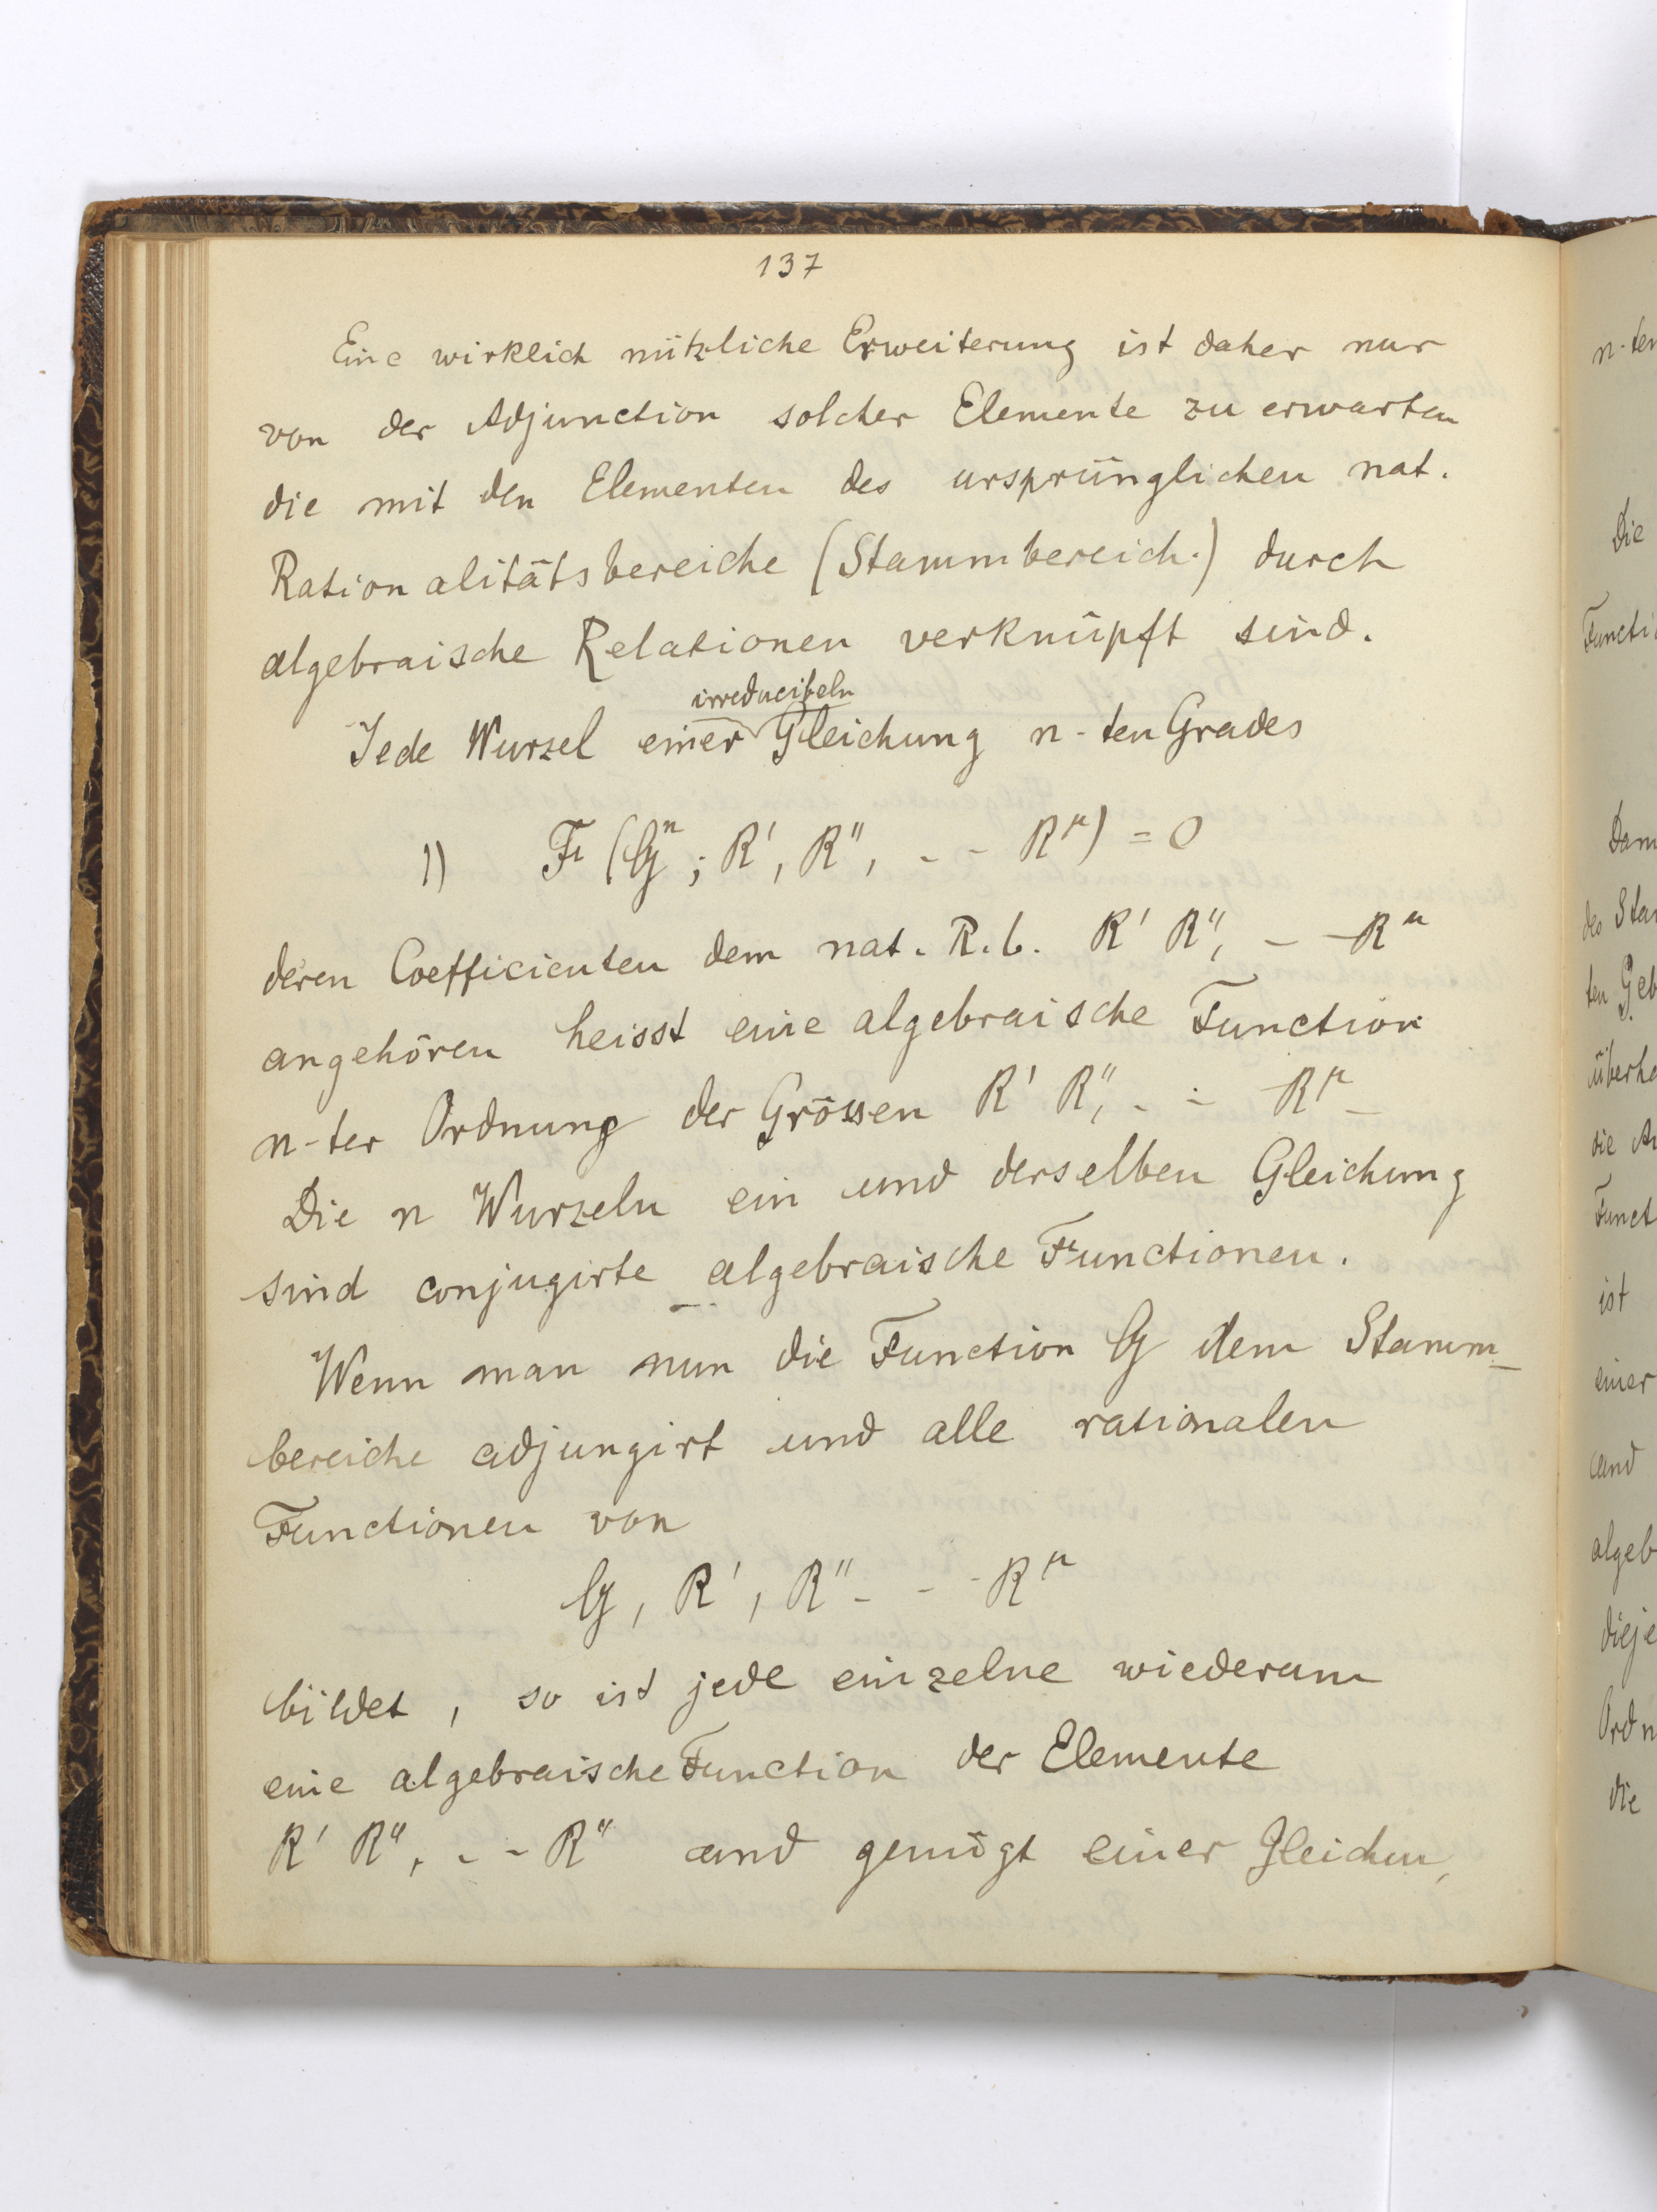 137
Eine wirklich nützliche Erweiterung ist daher nur
von der Adjunction solcher Elemente zu erwarten
die mit den Elementen des ursprünglichen nat.
Rationalitätsbereiche (Stammbereich.) durch
algebraische Relationen verknüpft sind.
irreducibeln
Jede Wurzel einer Gleichung n-ten Grades
1) F (G^n; R', R'', - - R^μ) = 0
deren Coefficienten dem nat. R.b. R' R'', - - R^μ
angehören heisst eine algebraische Function
n-ter Ordnung der Grössen R' R'', - - R^μ -
Die n Wurzeln ein und derselben Gleichung
sind conjugirte algebraische Functionen.
Wenn man nun die Function G dem Stamm-
bereiche adjungirt und alle rationalen
Functionen von
G, R', R'' - - R^μ
bildet, so ist jede einzelne wiederum
eine algebraische Function der Elemente
R' R'', - - R^μ und genügt einer Gleichun,
n-ten
Die
Functi
Dam
des Sta
ten Geb
überha
die A
Funct
ist
einer
und
algeb
dieje
Ordn
die